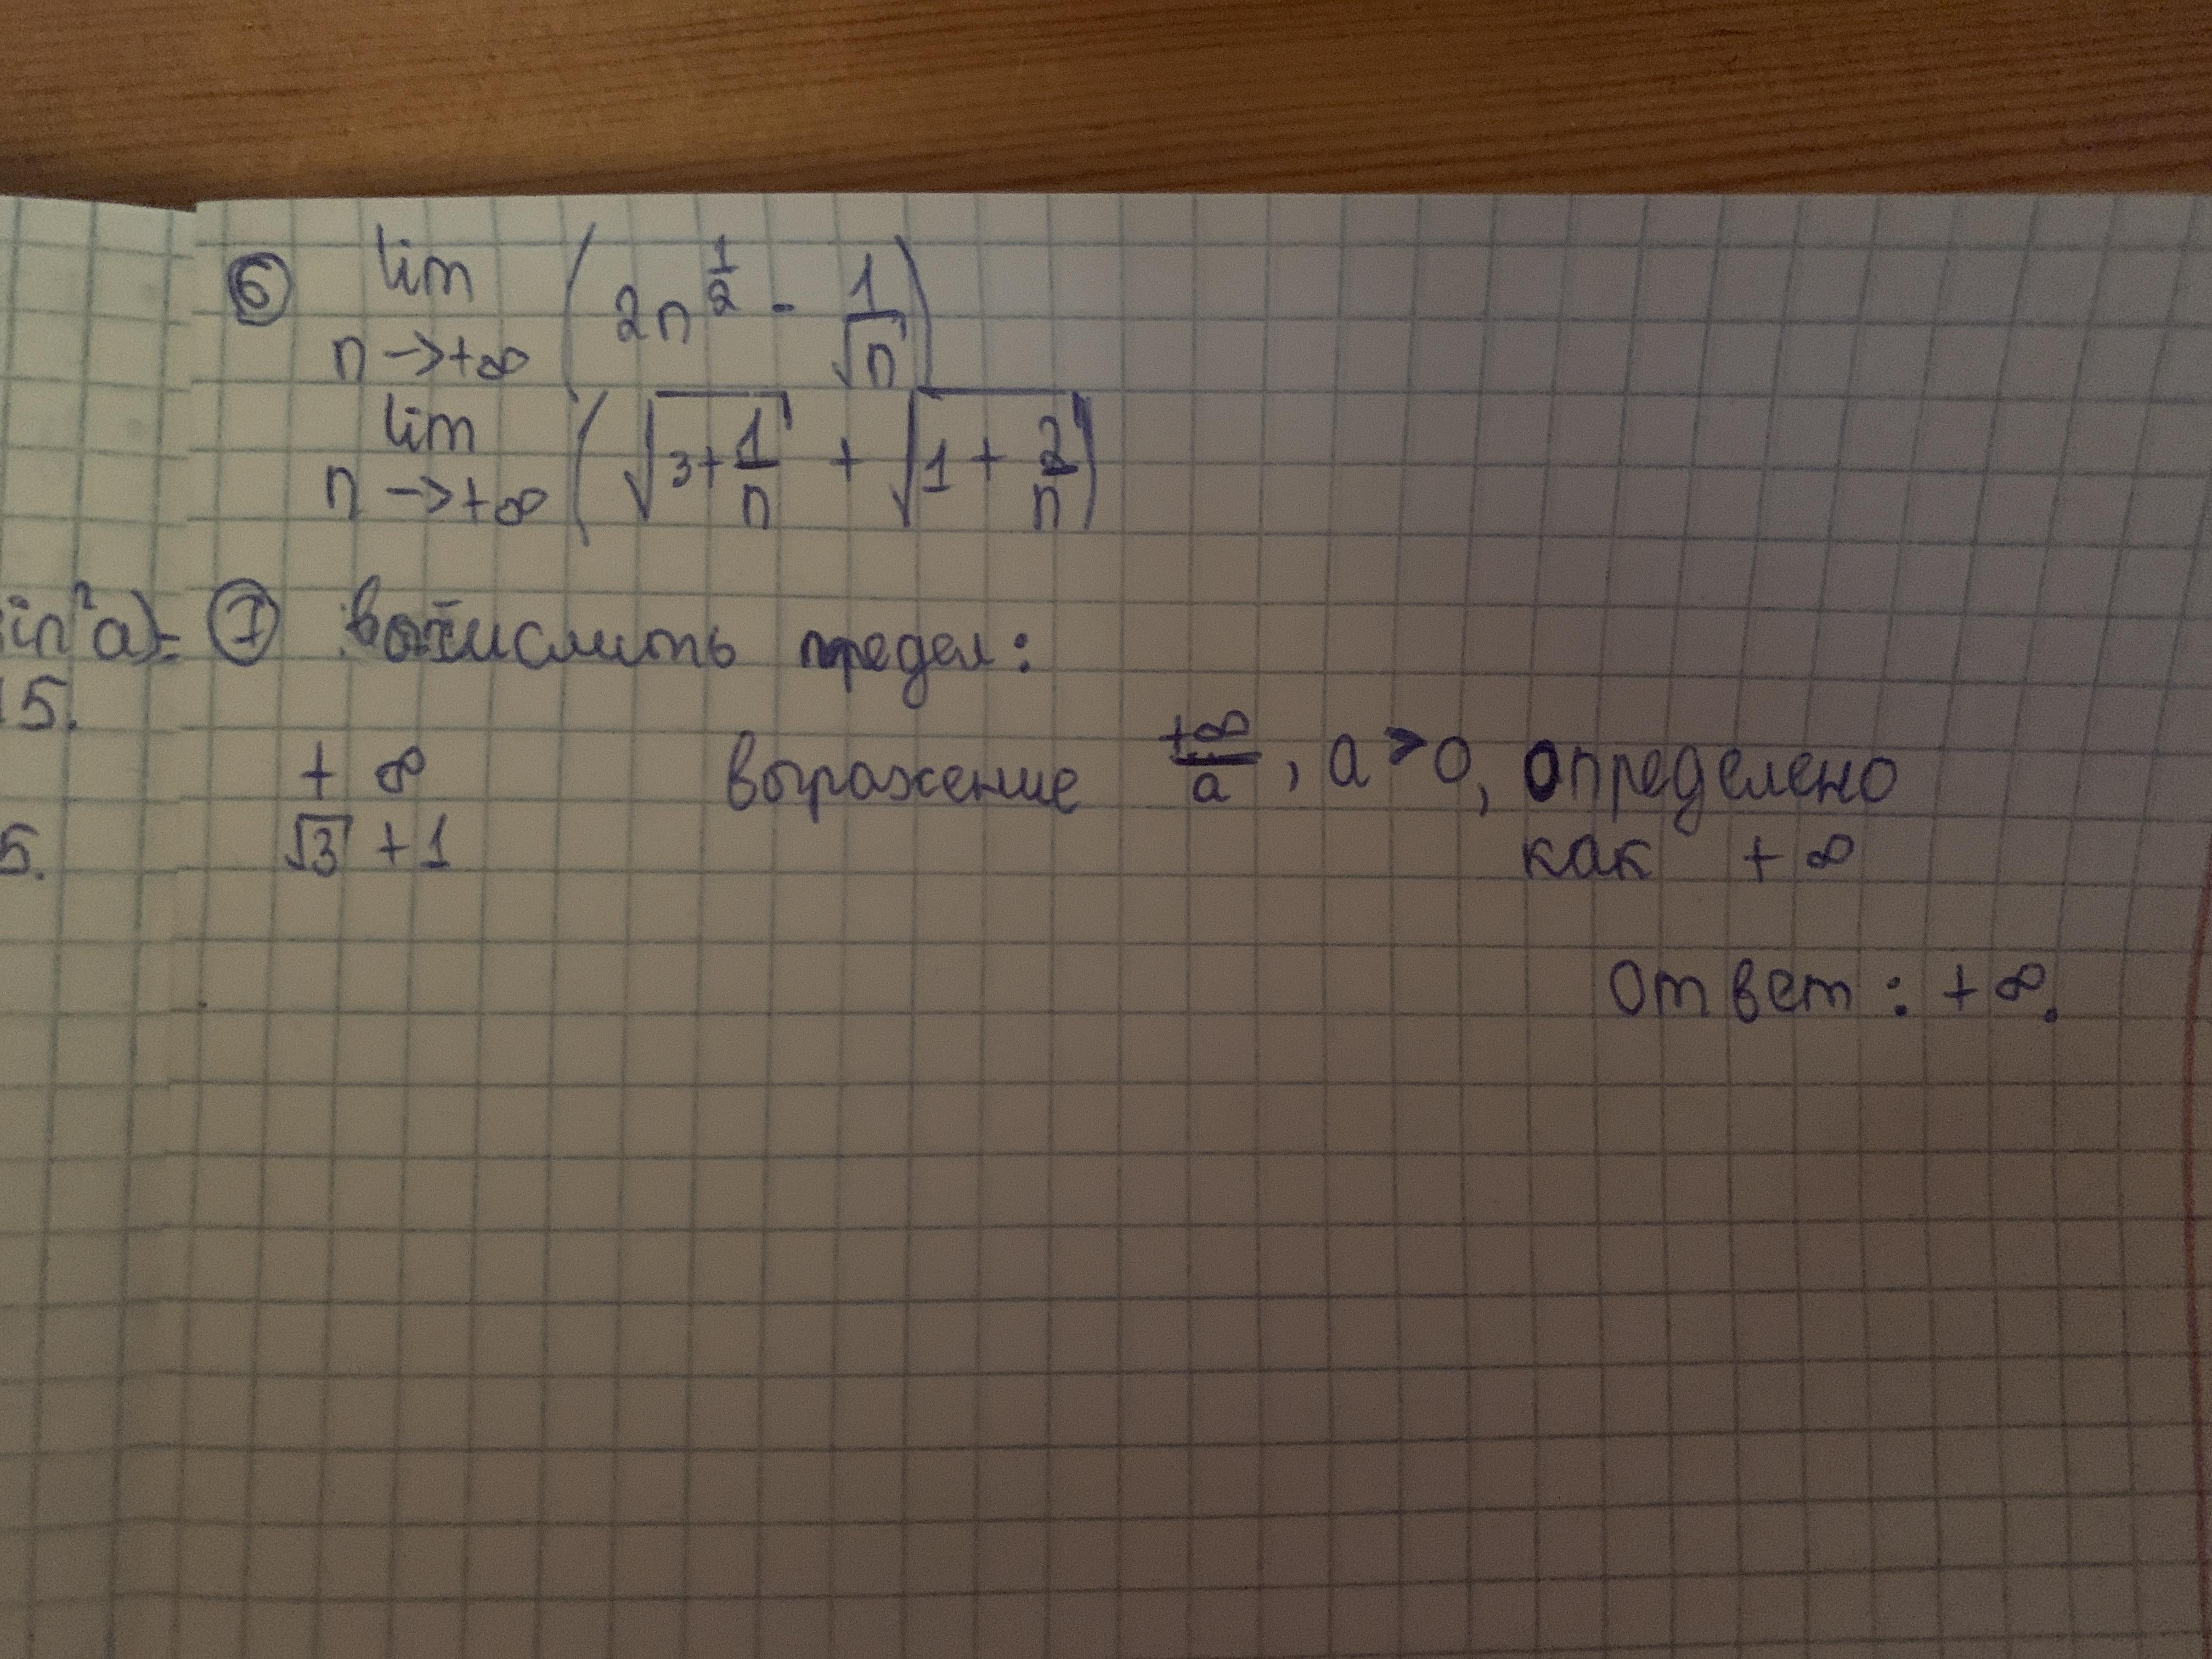 ⑥ lim n→+∞ (2n^{1/2} - 1/√n)
lim n→+∞ (√(3+1/n) + √(1+2/n))
in²a)=
⑦ вычислить предел:
15.
+∞
выражение +∞/a, a>0, определено
5.
√3 + 1
как +∞
Ответ: +∞.